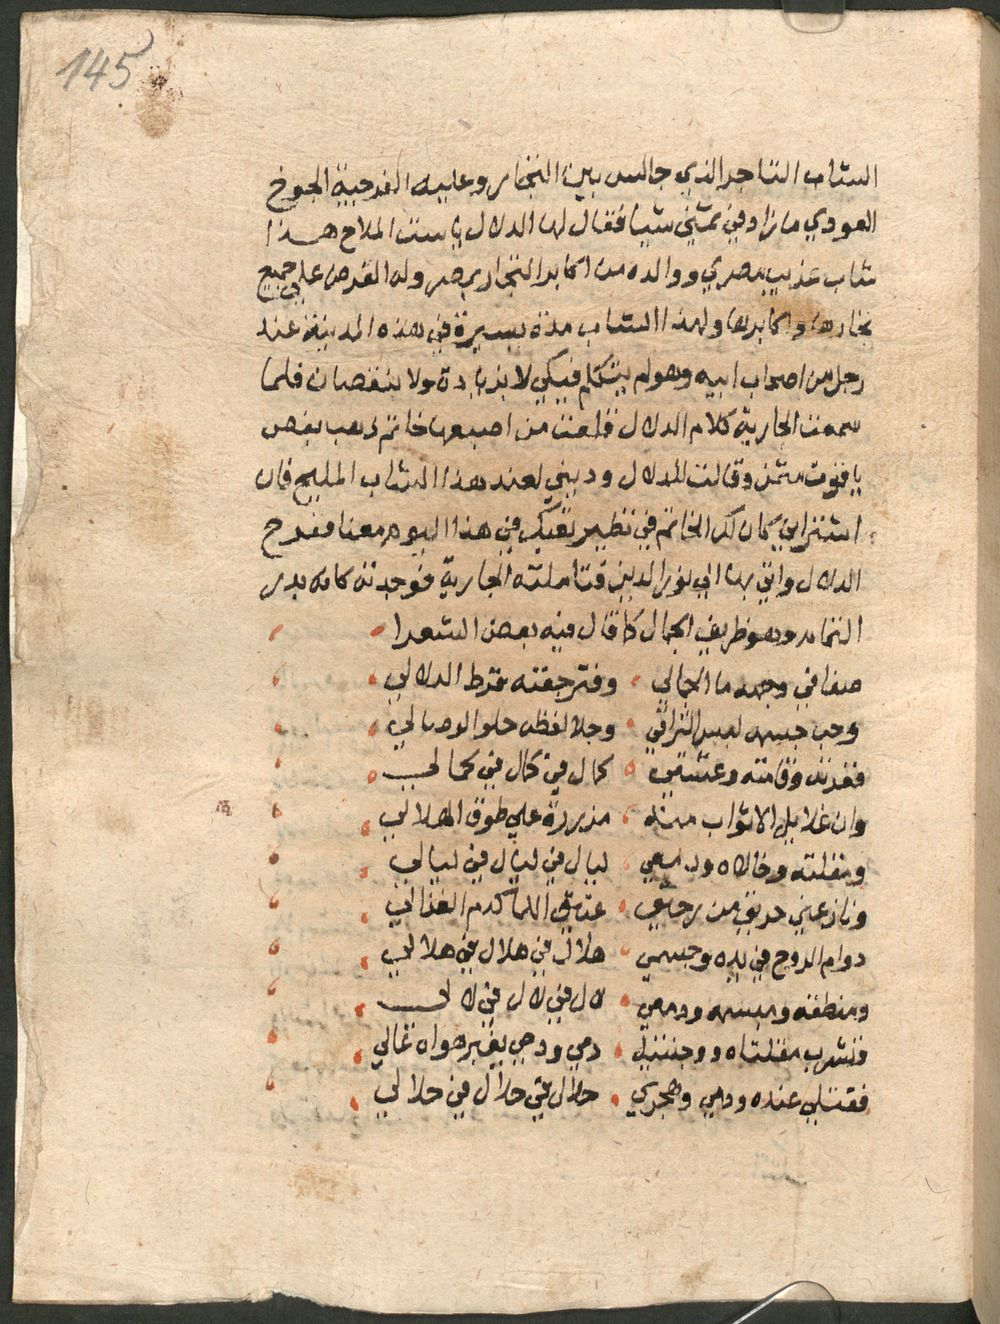 145
الشاب التاجر الذي جالس بين التجار وعليه الفرجية الجوخ
العودي ما زاد في ثمني شيا فقال لها الدلال يا ست الملاح هذا
شاب غريب مصري ووالده من اكابر التجار بمصر وله الفرض علي جميع
تجارها واكابرها ولهذا الشاب مدة يسيرة في هذه المدينة عند
رجل من اصحاب ابيه وهو لم يتكلم فيكي لا بزيادة ولا بنقصان فلما
سمعت الجارية كلام الدلال قلعت من اصبعها خاتم ذهب بفص
ياقوت مثمن وقالت للدلال وديني لعند هذا الشاب المليح فان
اشتراني كان لك الخاتم في نظير تعبك في هذا اليوم معنا ففرح
الدلال واتي بها الي نور الدين فتاملته الجارية فوجدته كانه بدر
التمام وهو ظريف الجمال كما قال فيه بعض الشعرا
صفا في وجهه ما الجمالي وفتر جفنه فرط الدلالي
جسمه لمس التراقي وحلا لفظه حلو الوصالي
وقامته وعشقي كمال في كمال في كمالي
وان غلايل الاثواب منه مزررة علي طوق الهلالي
ومقلته وخالاه ودمعي ليال في ليال في ليالي
عتيق اللما كدم الغزالي
دوام الروح في يده وجسمي هلال في هلال في هلالي
ومنطقه ومبسمه ودمعي لال في لال في لالي
فتشرب مقلتاه ووجنتيه دمي ودمي بغير هواه غالي
فقتلي عنده ودمي وهجري حلال في حلال في حلالي